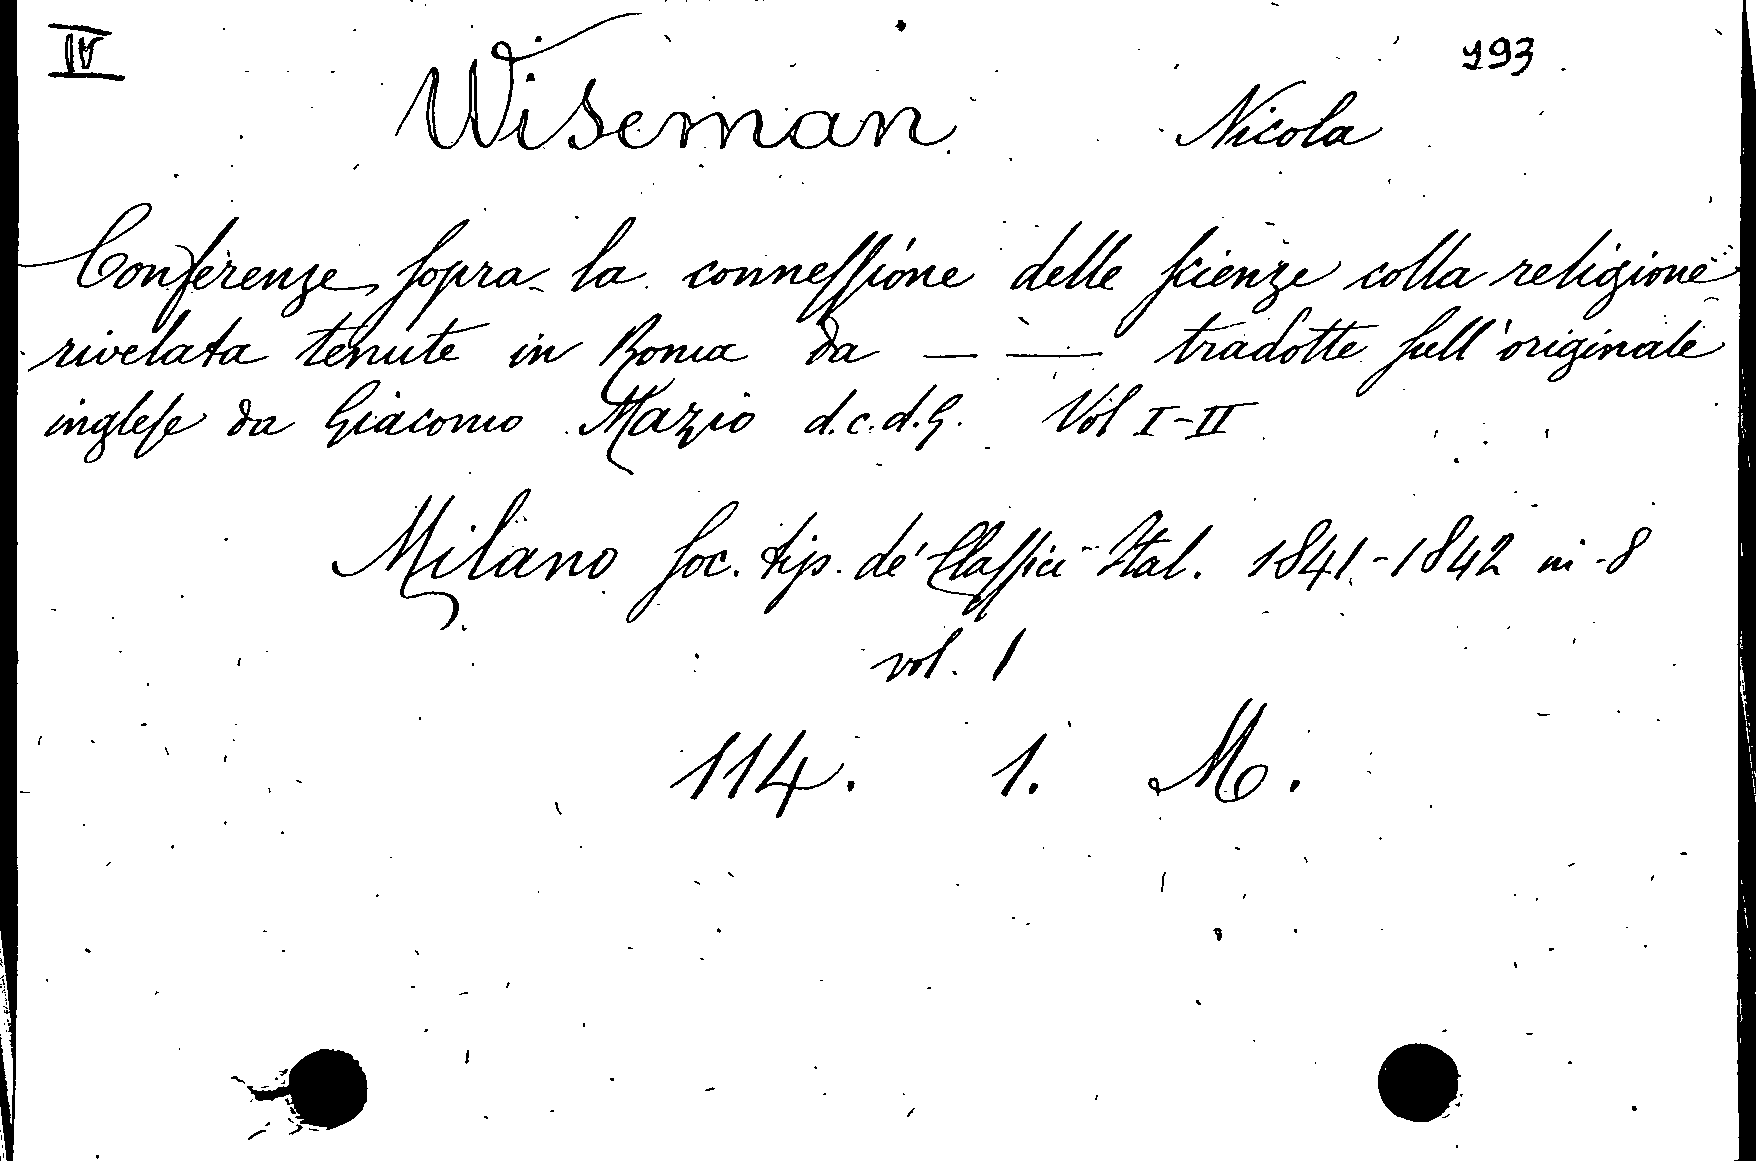 IV 193
Wiseman Nicola
Conferenze sopra la connessione delle scienze colla religione
rivelata tenute in Roma da — — tradotte sull'originale
inglese da Giacomo Mazio d.c.d.G. Vol I-II
Milano soc. tip. de' Classici Ital. 1841-1842 in-8
vol. 1
114. 1. M.